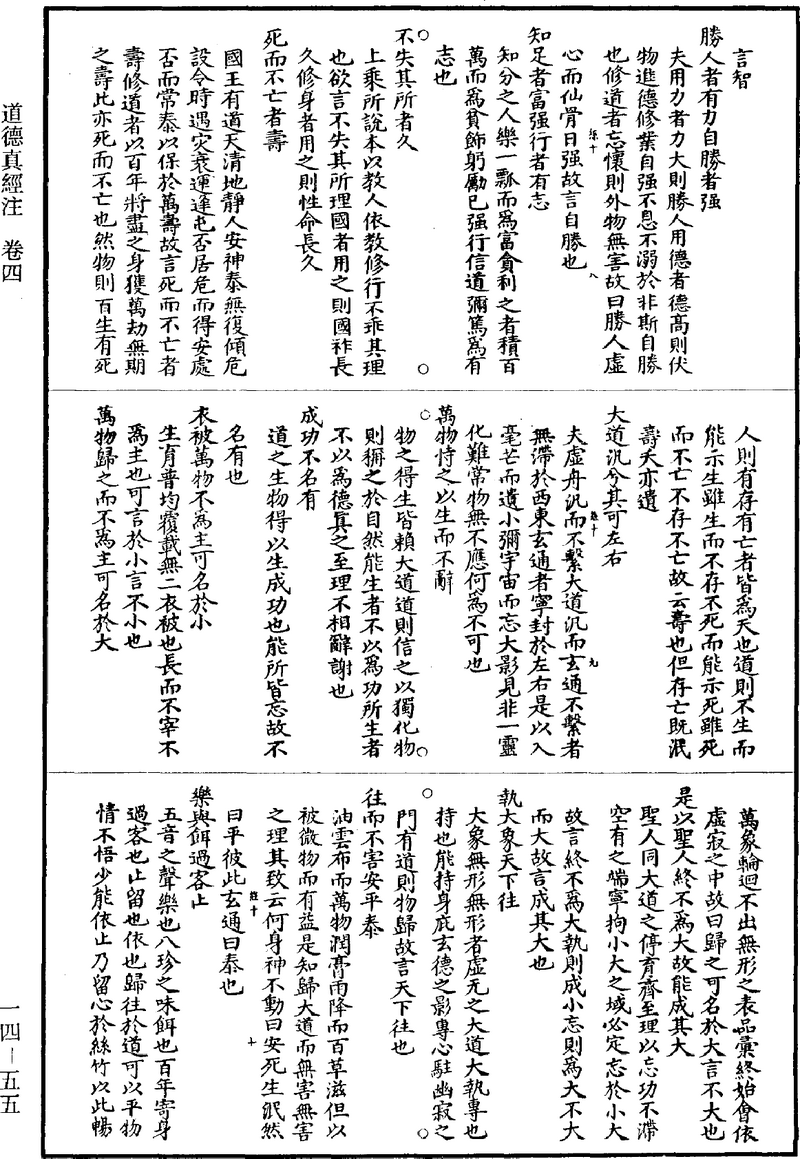 言智
勝人者有力自勝者强
夫用力者力大則勝人用德者德高則伏
物進德修業自强不息不溺於非斯自勝
也修道者忘懷則外物無害故曰勝人虛
心而仙骨日强故言自勝也
知足者富强行者有志
知分之人樂一瓢而爲富貪利之者積百
萬而爲貧飾躬勵己强行信道彌篤爲有
志也
不失其所者久
上乘所說本以教人依教修行不乖其理
也欲言不失其所理國者用之則國祚長
久修身者用之則性命長久
死而不亡者壽
國王有道天清地靜人安神泰無復傾危
設令時遇灾衰運逢屯否居危而得安處
否而常泰以保於萬壽故言死而不亡者
壽修道者以百年將盡之身獲萬劫無期
之壽此亦死而不亡也然物則百生有死
人則有存有亡者皆爲夭也道則不生而
能示生雖生而不存不死而能示死雖死
而不亡不存不亡故云壽也但存亡既泯
壽夭亦遺
大道汎兮其可左右
夫虛舟汎而不繫大道汎而玄通不繫者
無滯於西東玄通者寧封於左右是以入
毫芒而遺小彌宇宙而忘大影見非一靈
化難常物無不應何爲不可也
萬物恃之以生而不辭
物之得生皆賴大道道則信之以獨化物
則稱之於自然能生者不以爲功所生者
不以爲德冥之至理不相辭謝也
成功不名有
道之生物得以生成功也能所皆忘故不
名有也
衣被萬物不爲主可名於小
生育普均覆載無二衣被也長而不宰不
爲主也可言於小言不小也
萬物歸之而不爲主可名於大
萬象輪迴不出無形之表品彙終始會依
虛寂之中故曰歸之可名於大言不大也
是以聖人終不爲大故能成其大
聖人同大道之停育齊至理以忘功不滯
空有之端寧拘小大之域必定忘於小大
故言終不爲大執則成小忘則爲大不大
而大故言成其大也
執大象天下往
大象無形無形者虛无之大道大執專也
持也能持身庇玄德之影專心駐幽寂之
門有道則物歸故言天下往也
往而不害安平泰
油雲布而萬物潤膏雨降而百草滋但以
被微物而有益是知歸大道而無害無害
之理其致云何身神不動曰安死生泯然
曰平彼此玄通曰泰也
樂與餌過客止
五音之聲樂也八珍之味餌也百年寄身
過客也止留也依也歸往於道可以平物
情不悟少能依止乃留心於絲竹以此暢
道德真經注 卷四
一四-五五